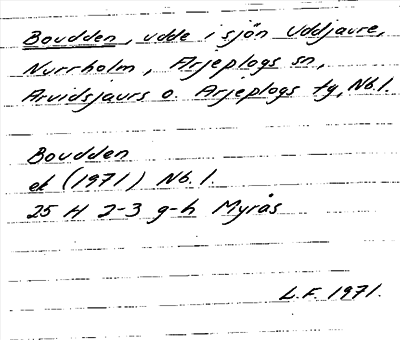 Boudden, udde i sjön Uddjaure,
Nyrrholm, Arjeplogs sn,
Arvidsjaurs o. Arjeplogs tg, Nb.l.
Boudden
ek (1971) Nb.l.
25 H 2-3 g-h Myrås
L.F. 1971.